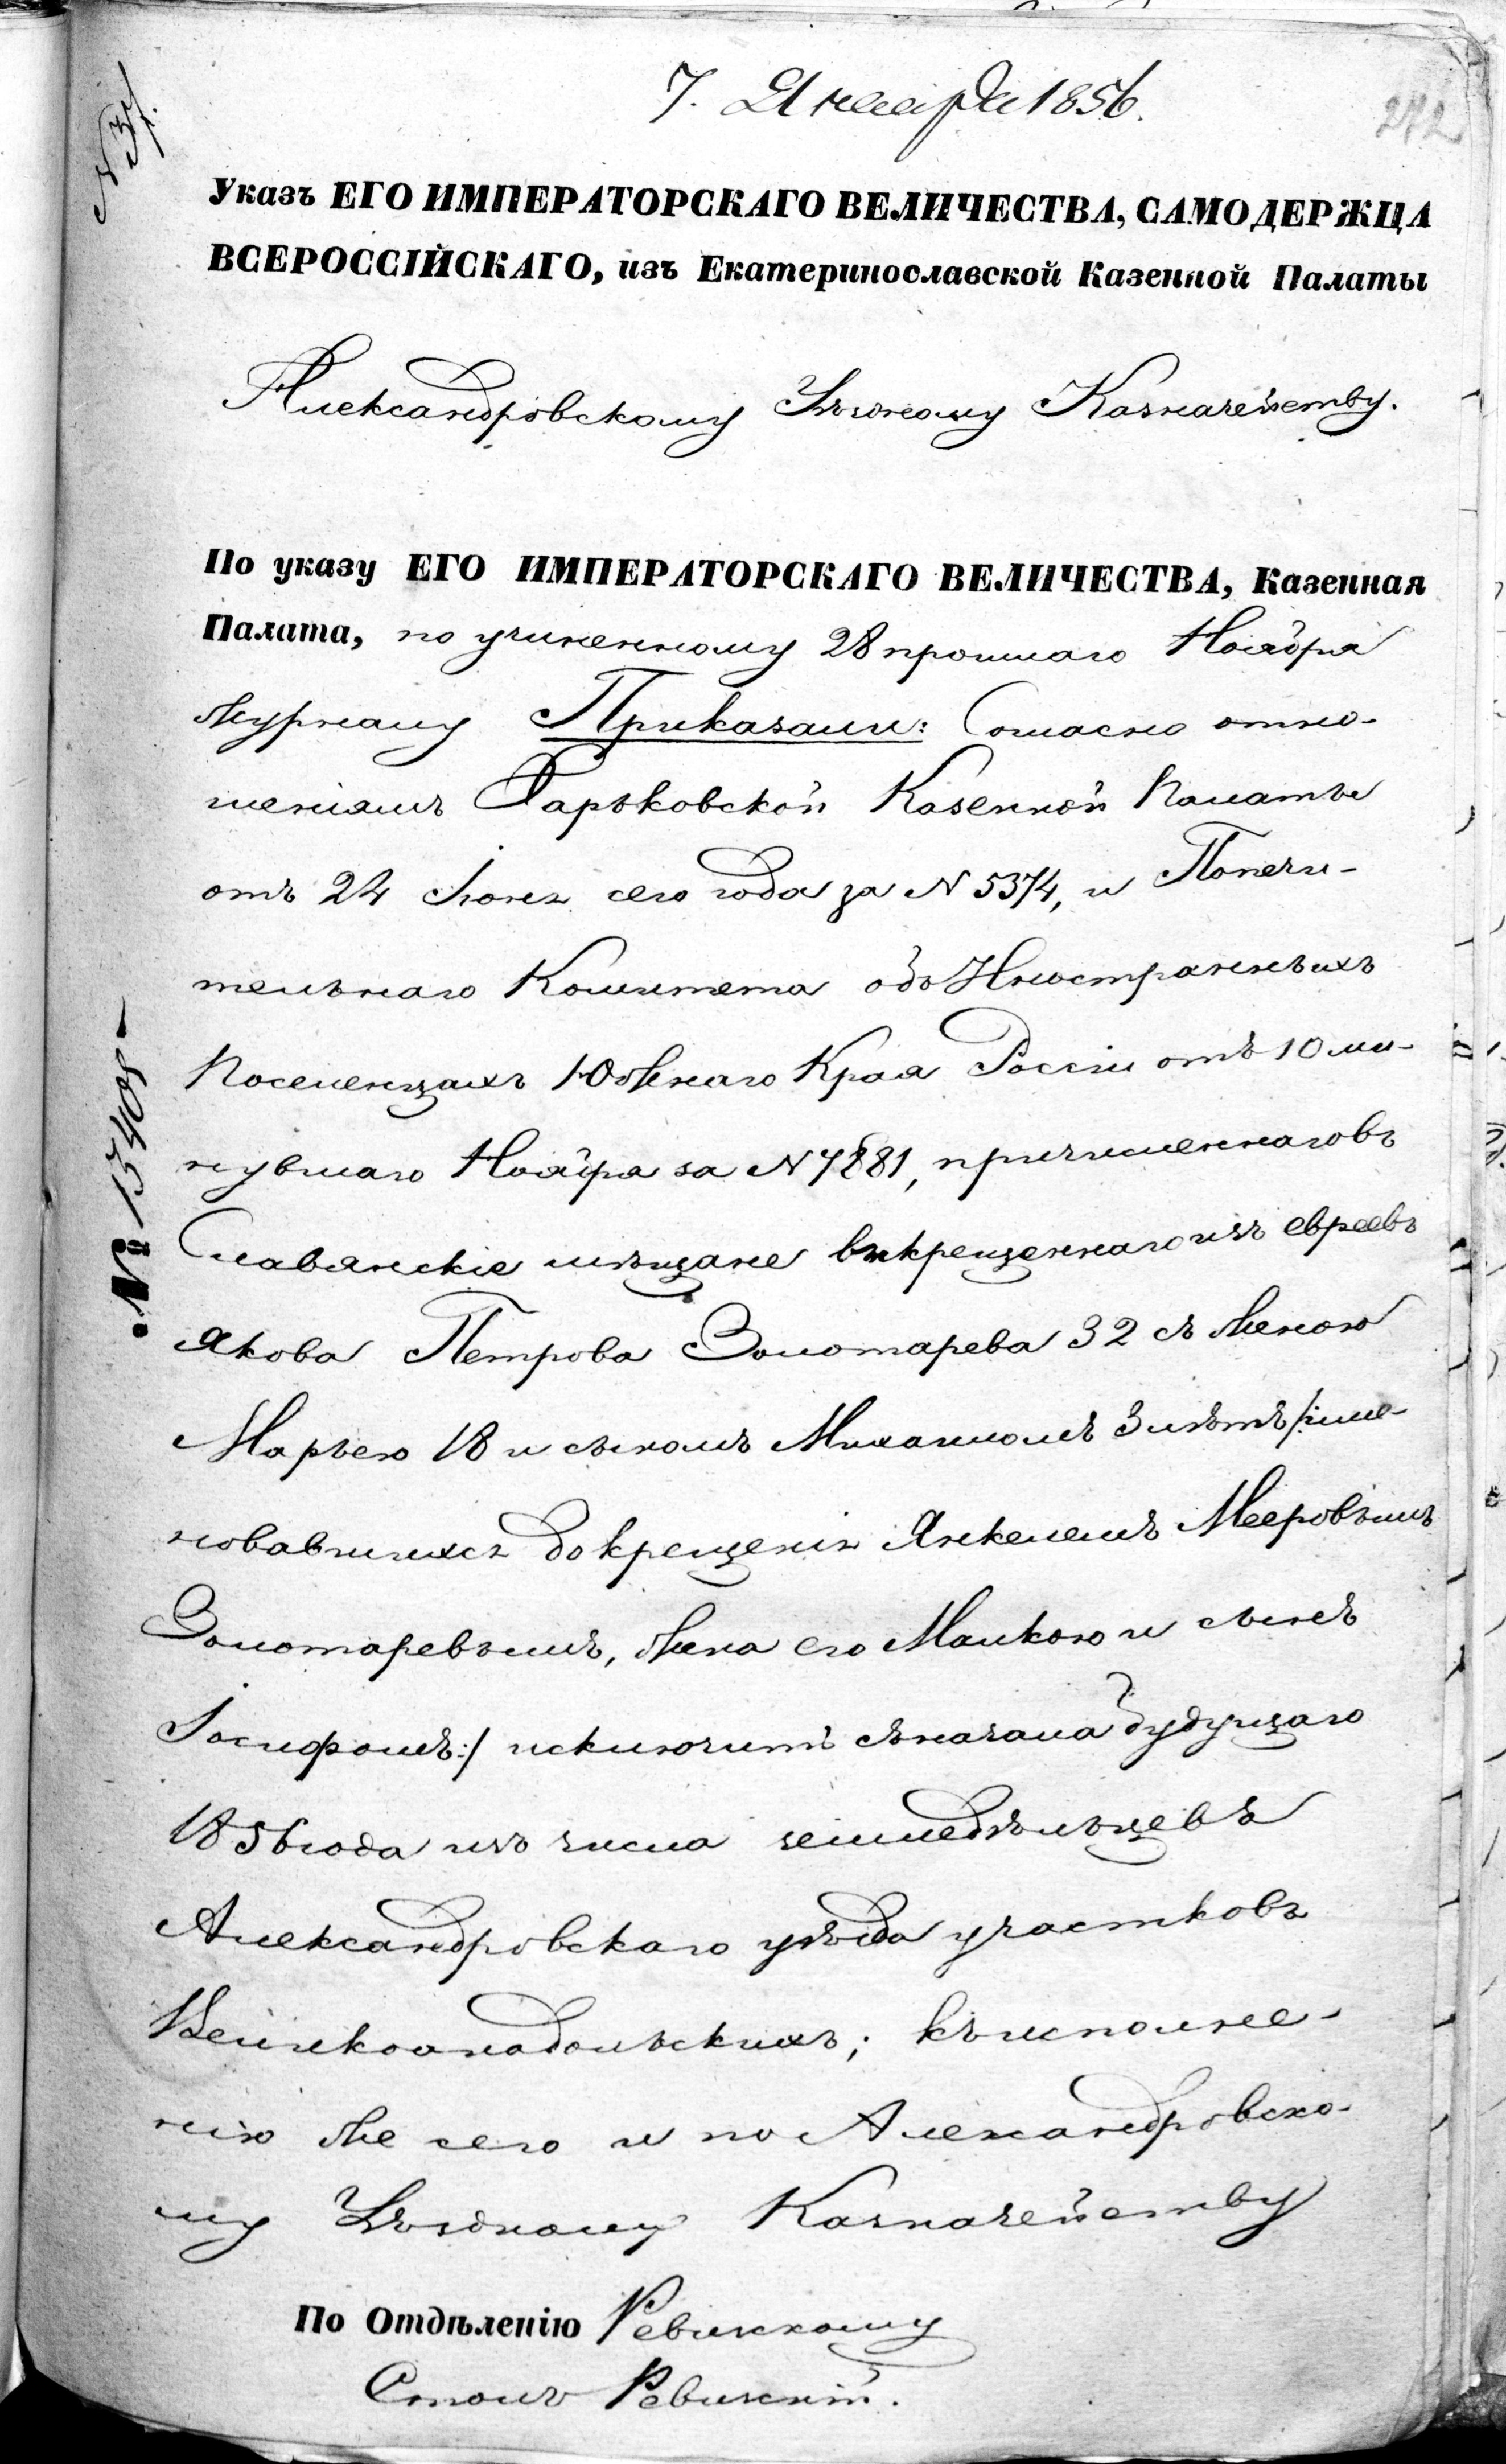 7. Января 1856.
272
Указъ ЕГО ИМПЕРАТОРСКАГО ВЕЛИЧЕСТВА, САМОДЕРЖЦА
ВСЕРОССІЙСКАГО, изъ Екатеринославской Казенной Палаты
Александровскому Уѣздному Казначейству.
По указу ЕГО ИМПЕРАТОРСКАГО ВЕЛИЧЕСТВА, Казенная
Палата, по учиненному 28 прошлаго Ноября
журналу Приказали: Согласно отно-
шеніямъ Харьковской Казенной Палаты
отъ 24 Іюня сего года за N 5374, и Попечи-
тельнаго Комитета объ Иностранныхъ
Поселенцахъ Южнаго Края Россіи отъ 10 ми-
нувшаго Ноября за N 7881, причисленнаго въ
Славянскіе мѣщане выкрещеннаго изъ евреевъ
Якова Петрова Золотарева 32 съ женою
Марьею 18 и сыномъ Михаиломъ 3 лѣтъ /:име-
новавшихся до крещенія Янкелемъ Мееровымъ
Золотаревымъ, жена его Малкою и сынъ
Іосифомъ:/ исключить съ начала будущаго
1856 года изъ числа земледѣльцевъ
Александровскаго уѣзда участковъ
Великоанадольскихъ; къ исполне-
нію же сего и по Александровско-
му Уѣздному Казначейству
По Отдѣленію Ревизскому
Столъ Ревизскій.
№ 13408